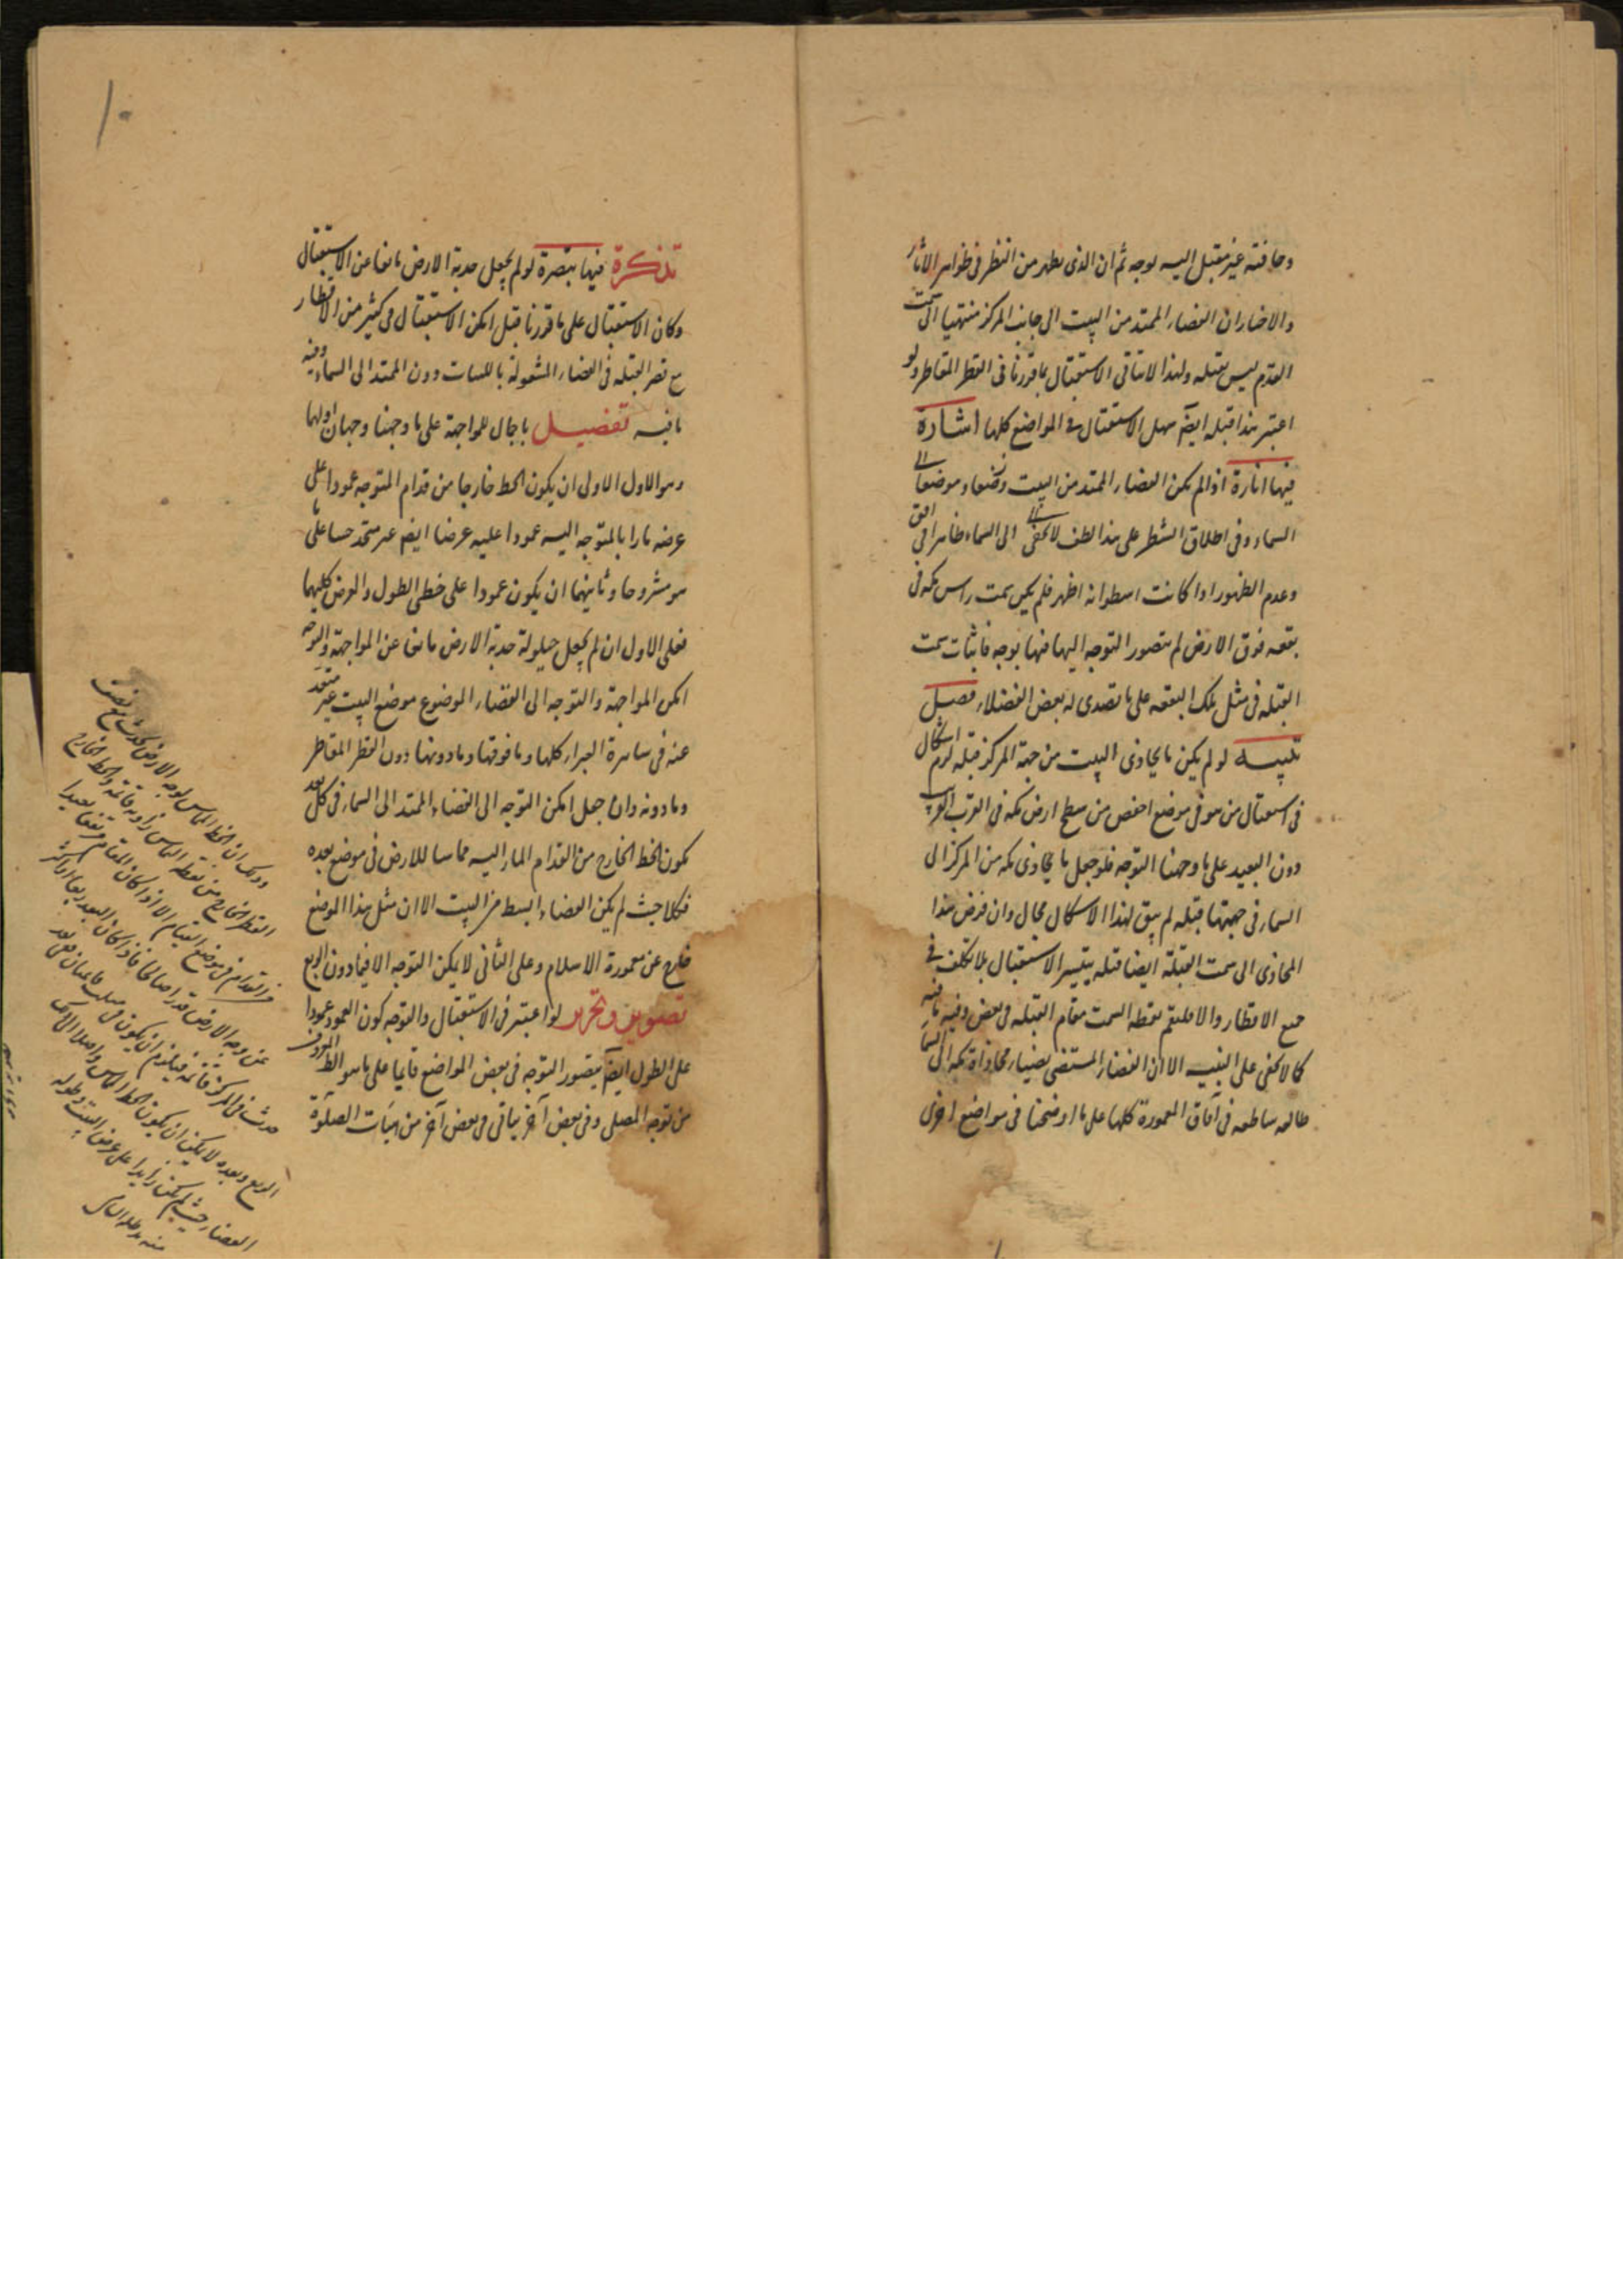 وحافته غير مقبل اليه بوجه ثم ان الذى يظهر من النظر فى ظواهر الاثار
والاخبار ان الفضاء الممتد من البيت الى جانب المركز منتهيا الى سمت
القدم ليس بقبلة ولهذا لا يتاتى الاستقبال بما قررنا فى القطر المقاطر ولو
اعتبر هذا قبلة ايضا سهل الاستقبال فى المواضع كلها اشارة
فيها انارة اذا لم يكن الفضاء الممتد من البيت وضعا وموضعا الى
السماء وفى اطلاق الشطر على هذا لطف لا يخفى الى السماء ظاهرا فى افق
وعدم الظهور اذا كانت اسطوانة اظهر فلم يكن سمت راس مكة فى
بقعة فوق الارض لم يتصور التوجه اليها فيها بوجه فاثبات سمت
القبلة فى مثل تلك البقعة على ما تصدى له بعض الفضلاء فصيل
تنبيه لو لم يكن ما يحاذى البيت من جهة المركز قبلة لزم اشكال
فى استقبال من هو فى موضع اخفض من سطح ارض مكة فى القرب القريب
دون البعيد على ما وجهنا التوجه فلو جعل ما يحاذى مكة من المركز الى
السماء فى جهتها قبلة لم يبق لهذا الاشكال مجال وان فرض هذا
المحاذى الى سمت القبلة ايضا قبلة يتيسر الاستقبال بلا تكلف فى
جميع الاقطار والا فليقم نقطة السمت مقام القبلة فى بعض وفيه ما فيه
كما لا يخفى على النبيه الا ان الفضاء المستضى بضياء محاذاة مكة الى السماء
طالعة ساطعة فى آفاق المعمورة كلها على ما اوضحنا فى مواضع اخرى
تذكرة فيها تبصرة لو لم يجعل حدبة الارض مانعا عن الاستقبال
وكان الاستقبال على ما قررنا قبل امكن الاستقبال فى كثير من الاقطار
مع قصر القبلة فى الفضاء المشغولة باللبنات دون الممتد الى السماء وفيه
ما فيه تفصيل باجال للمواجهة على ما وجهنا وجهان اولهما
وهو الاول الاولى ان يكون الخط خارجا من قدام المتوجه عمودا على
عرضه مارا بالمتوجه اليه عمودا عليه عرضا ايضا حسا على ما
هو مشروحا وثانيهما ان يكون عمودا على خطى الطول والعرض كليهما
فعلى الاول ان لم يجعل حيلولة حدبة الارض مانعا عن المواجهة والتوجه
امكن المواجهة والتوجه الى الفضاء الموضوع موضع البيت غير متعد
عنه فى ساهرة الغبراء كلها وما فوقها وما دونها دون القطر المقاطر
وما دونه وان جعل امكن التوجه الى الفضاء الممتد الى السماء فى كل بعد
يكون الخط الخارج من القدام المار اليه مماسا للارض فى موضع بعده
فكلا حيث لم يكن الفضاء ابسط من البيت الا ان مثل هذا الموضع
خارج عن معمورة الاسلام وعلى الثانى لا يمكن التوجه الا فيما دون الربع
تصوير وتحرير لو اعتبر فى الاستقبال والتوجه كون العمود عمودا
على الطول ايضا يتصور التوجه فى بعض المواضع قائما على ما هو الظ المعروف
من توجه المصلى وفى بعض آخر يتاتى فى بعض آخر من هيئات الصلوة
وذلك ان الخط المماس لوجه الارض يحدث مع نصف
القطر الخارج من نقطة التماس زاوية قائمة والخط الخارج
من القدام فى موضع القيام الا اذا كان المقام مرتفعا بعيدا
عن وجه الارض قدرا صالحا فاذا كان البعد ربعا او اكثر
حدث فى المركز قائمة فيلزم ان يكون فى مثلث قائمتان ففى بعد
الربع وبعده لا يمكن ان يكون الخط المماس واصلا الى
الفضاء حيث لم يكن زايدا على عرض البيت وطوله
منه مد ظله العالى